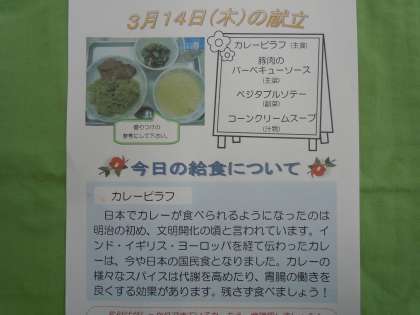 3月14日(木)の献立
カレーピラフ(主食)
豚肉の
バーベキューソース
(主菜)
ベジタブルソテー
(副菜)
コーンクリームスープ
(汁物)
盛りつけの
参考にして下さい。
今日の給食について
カレーピラフ
日本でカレーが食べられるようになったのは
明治の初め、文明開化の頃と言われています。イ
ンド・イギリス・ヨーロッパを経て伝わったカレー
は、今や日本の国民食となりました。カレーの
様々なスパイスは代謝を高めたり、胃腸の働きを
良くする効果があります。残さず食べましょう！